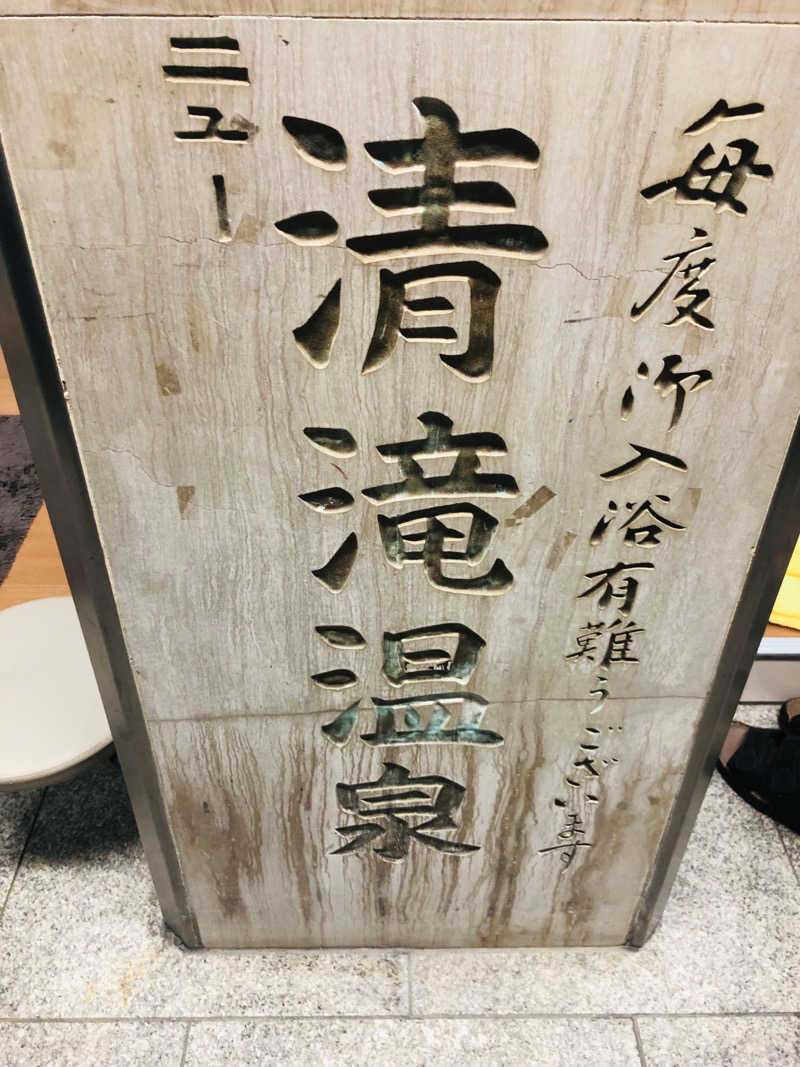 毎度御入浴有難うございます
ニュー
清滝温泉